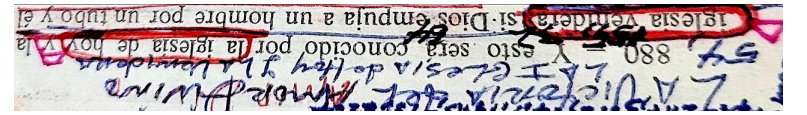 LA VICTORIA DEL AMOR DIVINO
LA IGLESIA de Hoy y LA Venidera
54, 880 Y esto será conocido por la iglesia de hoy y la
iglesia venidera; si Dios empuja a un hombre por un tubo y él